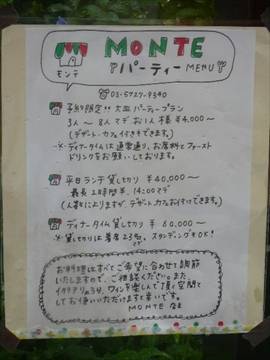 MONTE
モンテ
パーティー MENU
☎ 03-5727-9340
予約限定!! 大皿パーティープラン
3人〜8人マデ お1人様 ¥4,000〜
(デザート・カフェ付きもできます)
※ ディナータイムは通常通り、お席料とファースト
ドリンクをお願いしております。
平日ランチ貸し切り ¥40,000〜
最長2時間半、14:00マデ
(人数によりますが デザート・カフェお付けできます)
ディナータイム貸し切り ¥80,000〜
※ 貸し切りは着席23名、スタンディングもOK!
お料理はすべてご希望に合わせて調節
いたしますので、ご相談ください。また、
イタリアのよう、ワインを楽しんで頂く空間と
してお使いいただけますと幸いです。
MONTE 店主